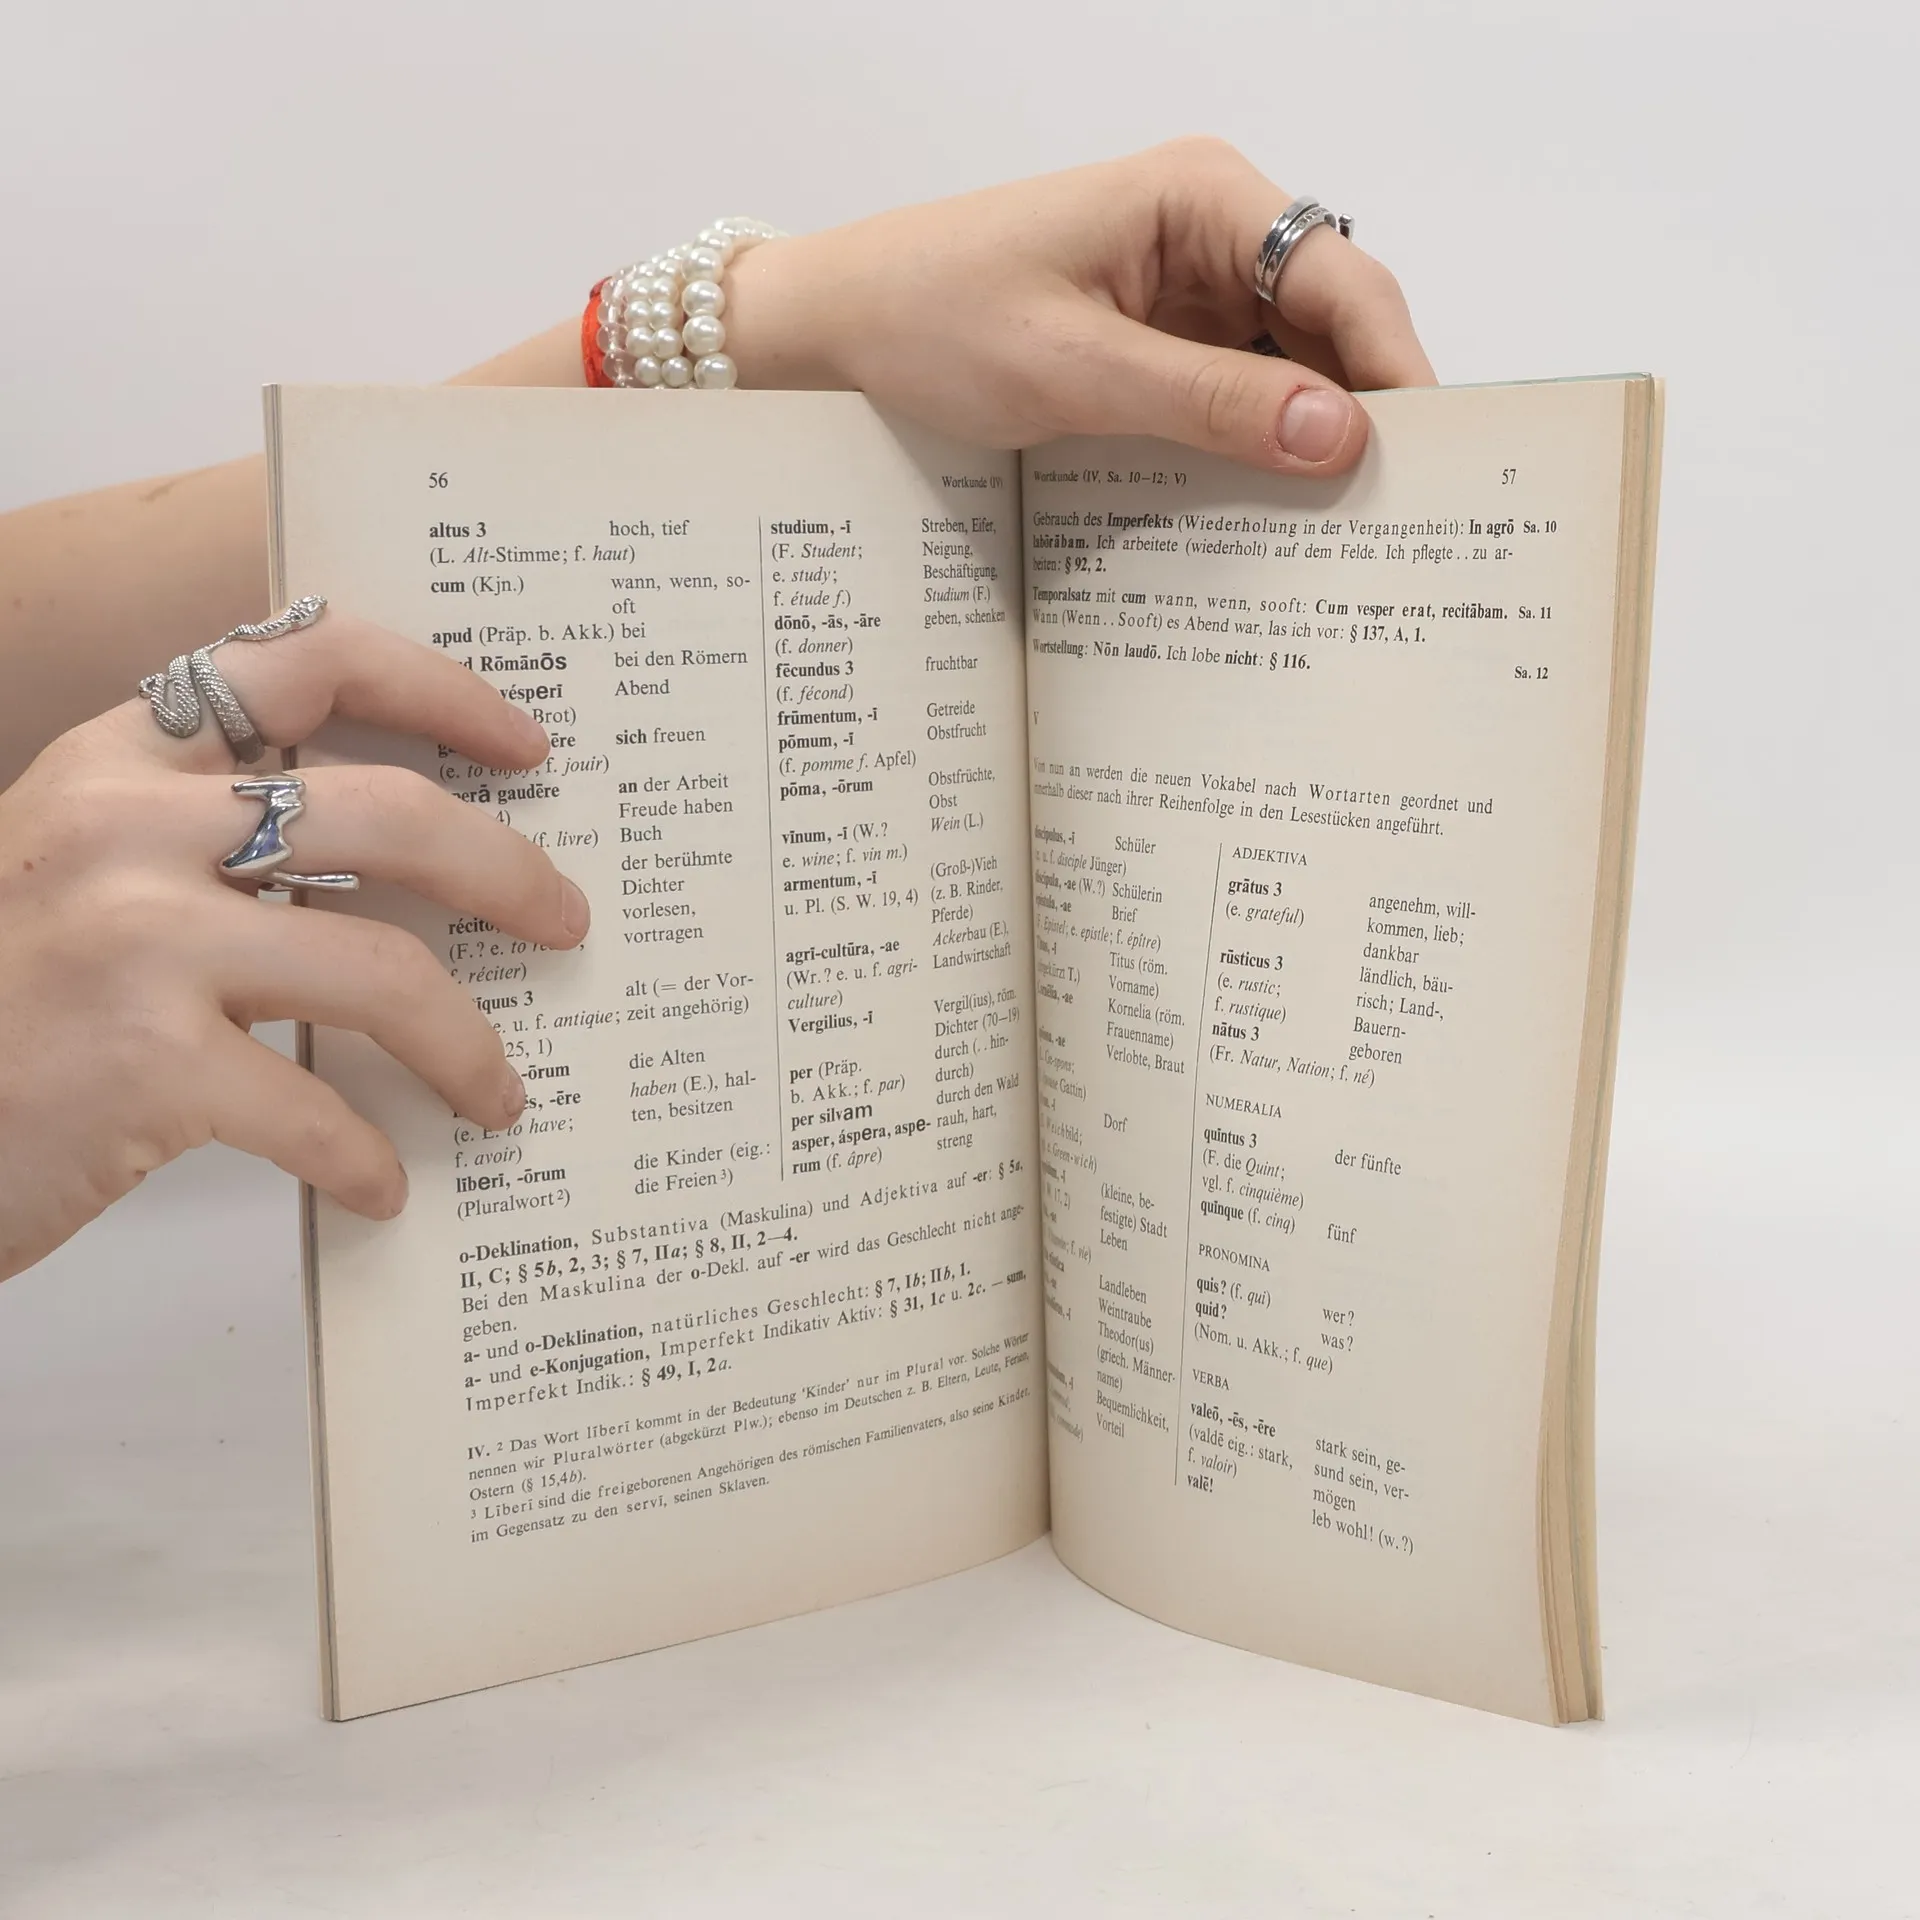 56
Wortkunde (IV)
altus 3 hoch, tief
(L. Alt-Stimme; f. haut)
cum (Kjn.) wann, wenn, so-
oft
apud (Präp. b. Akk.) bei
Rōmānōs bei den Römern
vésperī Abend
Brot)
ēre sich freuen
(e. to enjoy, f. jouir)
gaudēre an der Arbeit
4) Freude haben
(f. livre) Buch
der berühmte
Dichter
vorlesen,
récito, vortragen
(F.? e. to
f. réciter)
īquus 3 alt (= der Vor-
e. u. f. antique; zeit angehörig)
25, 1)
-ōrum die Alten
ēs, -ēre haben (E.), hal-
(e. E. to have; ten, besitzen
f. avoir)
līberī, -ōrum die Kinder (eig.:
(Pluralwort²) die Freien³)
studium, -ī Streben, Eifer,
(F. Student; Neigung,
e. study; Beschäftigung,
f. étude f.) Studium (F.)
dōnō, -ās, -āre geben, schenken
(f. donner)
fēcundus 3 fruchtbar
(f. fécond)
frūmentum, -ī Getreide
pōmum, -ī Obstfrucht
(f. pomme f. Apfel)
pōma, -ōrum Obstfrüchte,
Obst
vīnum, -ī (W.? Wein (L.)
e. wine; f. vin m.)
armentum, -ī (Groß-)Vieh
u. Pl. (S. W. 19, 4) (z. B. Rinder,
Pferde)
agrī-cultūra, -ae Ackerbau (E.),
(Wr.? e. u. f. agri- Landwirtschaft
culture)
Vergilius, -ī Vergil(ius), röm.
Dichter (70—19)
per (Präp. durch (. . hin-
b. Akk.; f. par) durch)
per silvam durch den Wald
asper, áspera, aspe- rauh, hart,
rum (f. âpre) streng
o-Deklination, Substantiva (Maskulina) und Adjektiva auf -er: § 5a,
II, C; § 5b, 2, 3; § 7, IIa; § 8, II, 2—4.
Bei den Maskulina der o-Dekl. auf -er wird das Geschlecht nicht ange-
geben.
a- und o-Deklination, natürliches Geschlecht: § 7, Ib; IIb, 1.
a- und e-Konjugation, Imperfekt Indikativ Aktiv: § 31, 1c u. 2c. — sum,
Imperfekt Indik.: § 49, I, 2a.
IV. ² Das Wort līberī kommt in der Bedeutung 'Kinder' nur im Plural vor. Solche Wörter
nennen wir Pluralwörter (abgekürzt Plw.); ebenso im Deutschen z. B. Eltern, Leute, Ferien,
Ostern (§ 15,4b).
³ Līberī sind die freigeborenen Angehörigen des römischen Familienvaters, also seine Kinder,
im Gegensatz zu den servī, seinen Sklaven.
Wortkunde (IV, Sa. 10—12; V) 57
Gebrauch des Imperfekts (Wiederholung in der Vergangenheit): In agrō Sa. 10
labōrābam. Ich arbeitete (wiederholt) auf dem Felde. Ich pflegte . . zu ar-
beiten: § 92, 2.
Temporalsatz mit cum wann, wenn, sooft: Cum vesper erat, recitābam. Sa. 11
Wann (Wenn . . Sooft) es Abend war, las ich vor: § 137, A, 1.
Wortstellung: Nōn laudō. Ich lobe nicht: § 116. Sa. 12
V
Von nun an werden die neuen Vokabel nach Wortarten geordnet und
innerhalb dieser nach ihrer Reihenfolge in den Lesestücken angeführt.
discipulus, -ī Schüler
u. f. disciple Jünger)
discipula, -ae (W.?) Schülerin
epistula, -ae Brief
Epistel; e. epistle; f. épître)
Titus, -ī Titus (röm.
(abgekürzt T.) Vorname)
Cornēlia, -ae Kornelia (röm.
Frauenname)
-ae Verlobte, Braut
Gattin)
-ī Dorf
Weichbild;
Green-wich)
-ī (kleine, be-
17, 2) festigte) Stadt
-ae Leben
f. vie)
Landleben
Weintraube
-ī Theodor(us)
(griech. Männer-
name)
-ī Bequemlichkeit,
Vorteil
ADJEKTIVA
grātus 3 angenehm, will-
(e. grateful) kommen, lieb;
dankbar
rūsticus 3 ländlich, bäu-
(e. rustic; risch; Land-,
f. rustique) Bauern-
nātus 3 geboren
(Fr. Natur, Nation; f. né)
NUMERALIA
quīntus 3 der fünfte
(F. die Quint;
vgl. f. cinquième)
quīnque (f. cinq) fünf
PRONOMINA
quis? (f. qui) wer?
quid? was?
(Nom. u. Akk.; f. que)
VERBA
valeō, -ēs, -ēre stark sein, ge-
(valdē eig.: stark, sund sein, ver-
f. valoir) mögen
valē! leb wohl! (w.?)